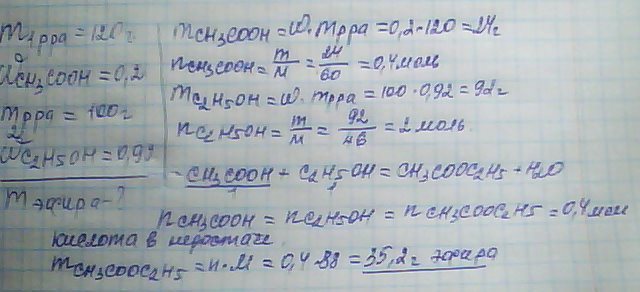 m₁рра = 120г
ωCH₃COOH = 0,2
m₂рра = 100г
ωC₂H₅OH = 0,92
mэфира - ?
mCH₃COOH = ω · mрра = 0,2 · 120 = 24г
nCH₃COOH = m/M = 24/60 = 0,4 моль
mC₂H₅OH = ω · mрра = 100 · 0,92 = 92г
nC₂H₅OH = m/M = 92/46 = 2 моль
CH₃COOH + C₂H₅OH = CH₃COOC₂H₅ + H₂O
1 1
nCH₃COOH = nC₂H₅OH = nCH₃COOC₂H₅ = 0,4 моль
кислота в недостатке
mCH₃COOC₂H₅ = n · M = 0,4 · 88 = 35,2г эфира